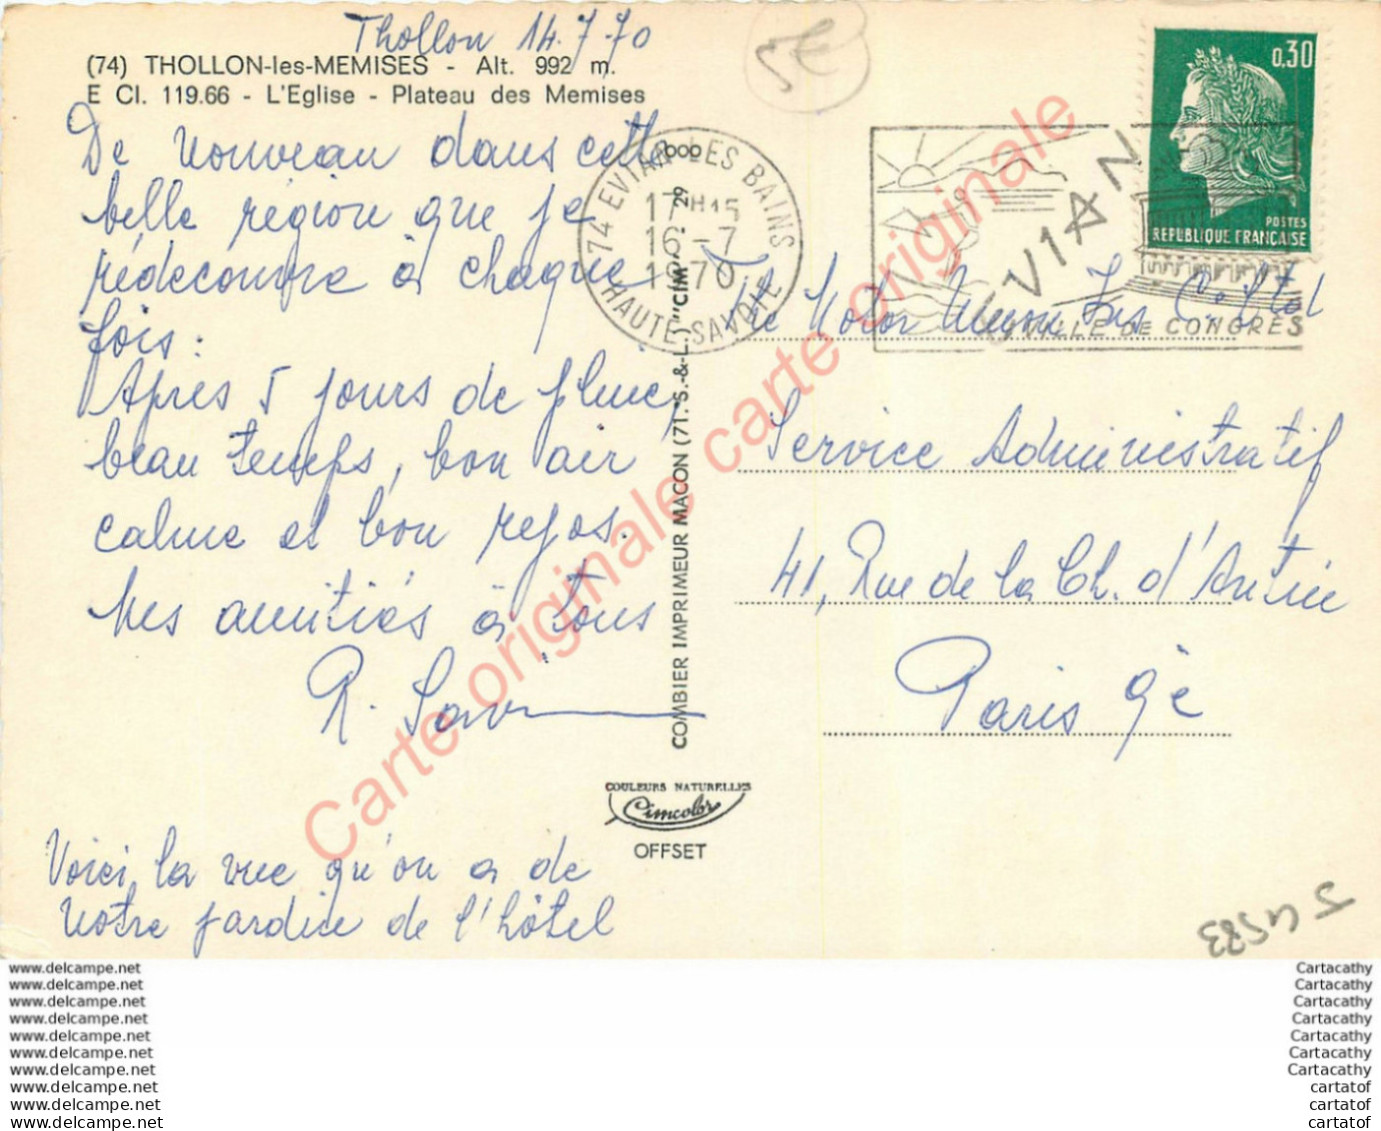 Thollon 14.7.70
(74) THOLLON-les-MEMISES - Alt. 992 m.
E Cl. 119.66 - L'Eglise - Plateau des Memises
De nouveau dans cette
belle région que je
redécouvre à chaque
fois.
Après 5 jours de pluie,
beau temps, bon air
calme et bon repos.
Mes amitiés à tous
R.
Voici la vue qu'on a de
notre jardin de l'hôtel
5€
74 EVIAN-LES-BAINS
17H15
16-7
1970
HAUTE-SAVOIE
EVIAN
VILLE DE CONGRÈS
0,30
POSTES
REPUBLIQUE FRANÇAISE
COMBIER IMPRIMEUR MACON (71. S.-&-L.) "CIM"
COULEURS NATURELLES
Cimcolor
OFFSET
The Motor Union Ins C° Ltd
Service Administratif
41, Rue de la Ch. d'Antin
Paris 9è
54583
Carte originale carte originale
www.delcampe.net
www.delcampe.net
www.delcampe.net
www.delcampe.net
www.delcampe.net
www.delcampe.net
www.delcampe.net
www.delcampe.net
www.delcampe.net
www.delcampe.net
Cartacathy
Cartacathy
Cartacathy
Cartacathy
Cartacathy
Cartacathy
Cartacathy
cartatof
cartatof
cartatof